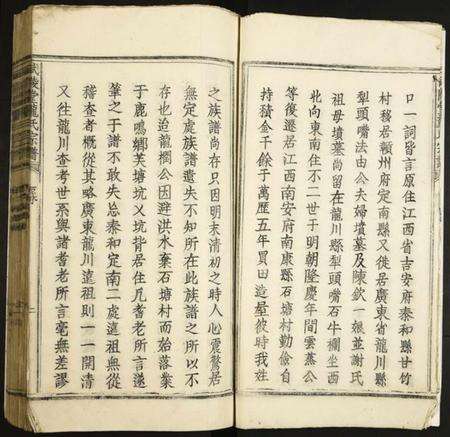 口一詞皆言原住江西省吉安府泰和縣甘竹
村移居贛州府定南縣又徙居廣東省龍川縣
犁頭嘴法由公夫婦墳墓及陳欽一娘並謝氏
祖母墳墓尚留在龍川縣犁頭嘴石牛欄坐西
向東南住不二世于明朝隆慶年間雲公
等復遷居江西南安府南康縣石塘村勤儉自
持積金千餘于萬歷五年買田造屋彼時我姓
之族譜尚存只因明末清初之時人心震驚居
無定處族譜遺失不知所在此族譜之所以不
存也迨龍公因避洪水棄石塘村而始落業
于鹿鳴鄉芙塘坑乂坑背居住凡耆老所言遂
筆之于譜不敢失忘泰和定南二處遠祖無從
稽查者概從其略廣東龍川遠祖則一一開清
又往龍川查考世系與諸耆老所言毫無差謬
武陵堂龍氏宗譜
二